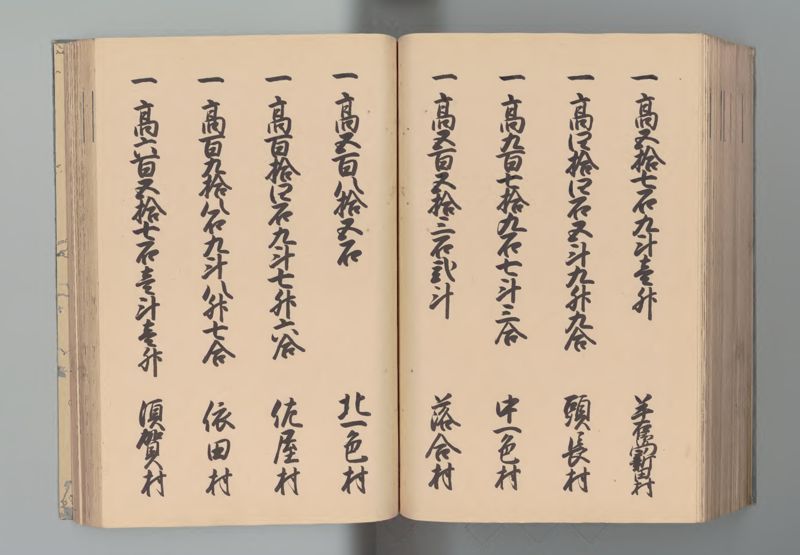 一 高五拾七石九斗壱升
一 高四拾四石五斗九升九合 頭長村
一 高九百七拾九石七斗三合 中一色村
一 高五百五拾三石弐斗 落合村
一 高五百八拾五石 北一色村
一 高百拾四石九斗七升六合 佐屋村
一 高百九拾八石九斗八升七合 依田村
一 高六百五拾七石壱斗壱升 須賀村